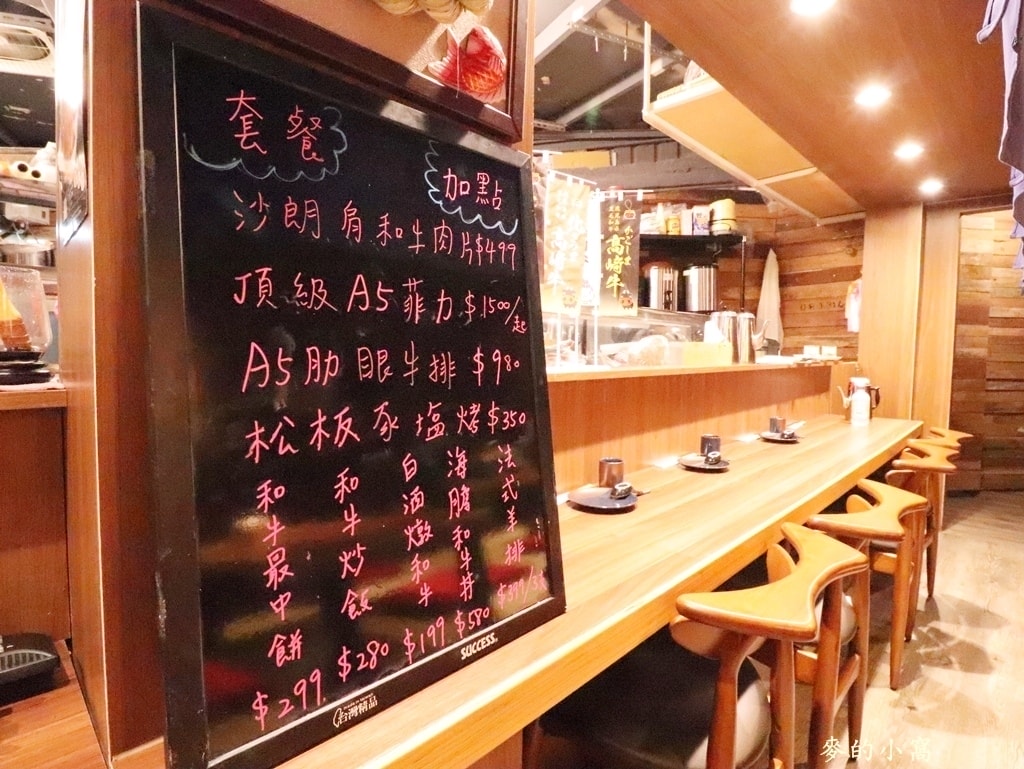 套餐
加點
沙朗肩和牛肉片$499
頂級A5菲力$1500/起
A5肋眼牛排$980
松板豕塩烤$350
和牛最中餅$299
和牛炒飯$280
白酒燉和牛$199
海膽和牛丼$580
法式羊排
SUCCESS
台灣精品
高崎牛
麥的小窩